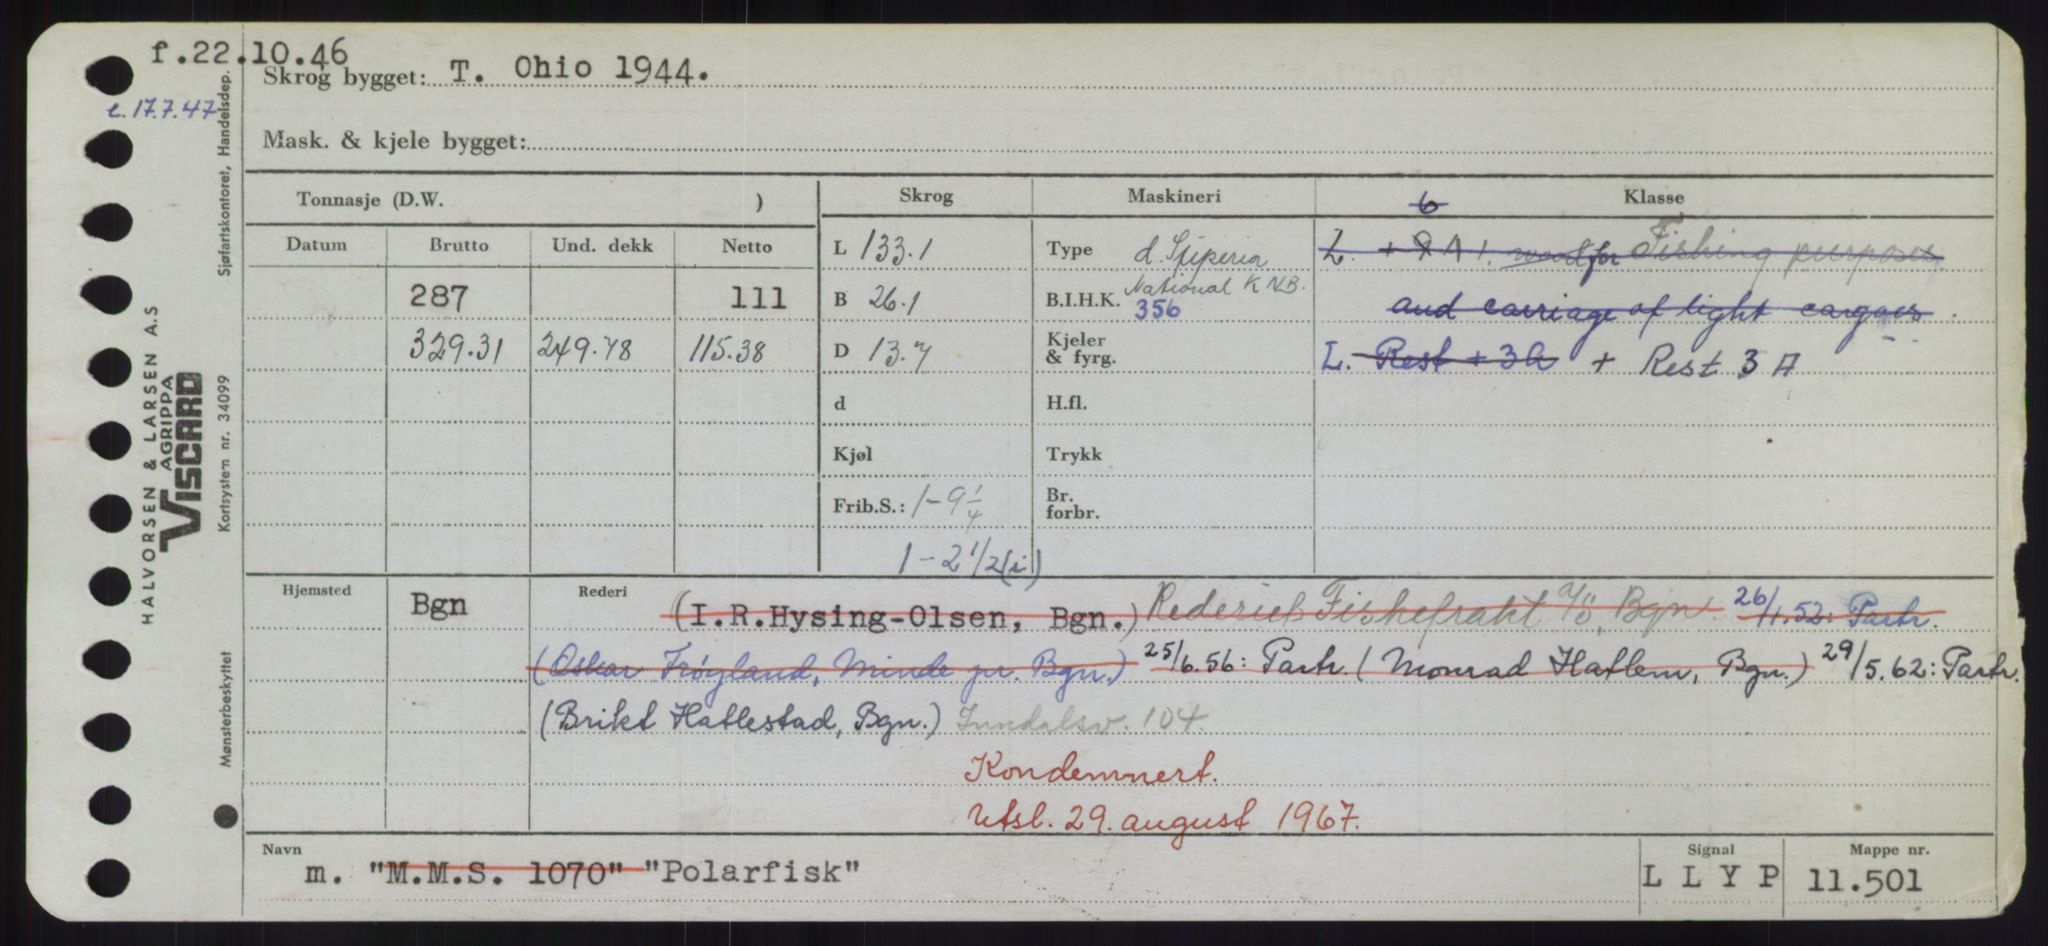 f.22.10.46
Skrog bygget: T. Ohio 1944.
e.17.7.47
Mask. & kjele bygget:
Tonnasje (D.W. )
Skrog
Maskineri
6
Klasse
Datum
Brutto
Und. dekk
Netto
L 133.1
Type d.
L. + A 1. for Fishing purposes
287
111
B 26.1
B.I.H.K. National K N.B.
356
and carriage of light cargoes.
329.31
249.78
115.38
D 13.7
Kjeler & fyrg.
L. Rest + 3A + Rest 3 A
d
H.fl.
Kjøl
Trykk
Frib.S.: 1-9 1/4
Br. forbr.
1-2 1/2 (i)
Hjemsted
Bgn
Rederi
(I.R.Hysing-Olsen, Bgn.) Rederiet Fiskefrakt A/S, Bgn. 26/1.52: Partr.
(Oskar Frøyland, Minde pr. Bgn.) 25/6.56: Partr. (Monrad Hatlem, Bgn.) 29/5.62: Partr.
(Brikt Hatlestad, Bgn.) 104.
Kondemnert.
Utsl. 29. august 1967.
Navn
m. "M.M.S. 1070" "Polarfisk"
Signal
L L Y P
Mappe nr.
11.501
HALVORSEN & LARSEN A.S
AGRIPPA
VISCARD
Sjøfartskontoret, Handelsdep.
Kortsystem nr. 34099
Mønsterbeskyttet